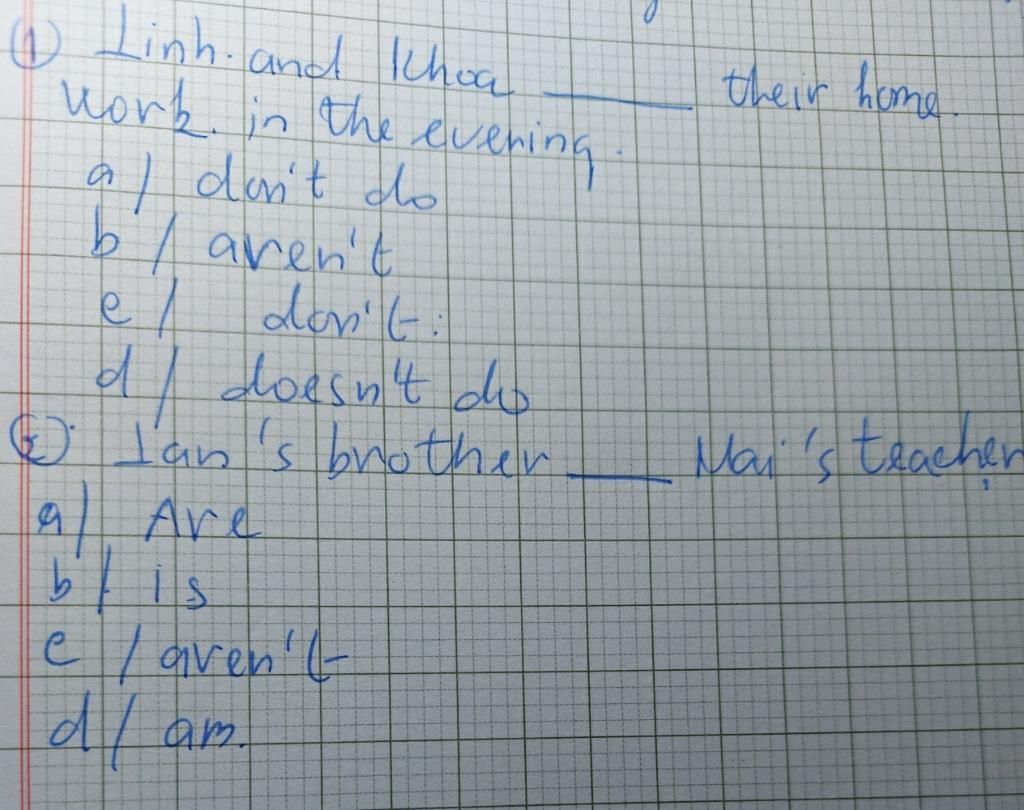 ① Linh. and Khoa ______ their home.
work. in the evening.
a / don't do
b / aren't
c / don't.
d / doesn't do
②. Ian's brother ____ Mai's teacher
a / Are
b / is
c / aren't
d / am.